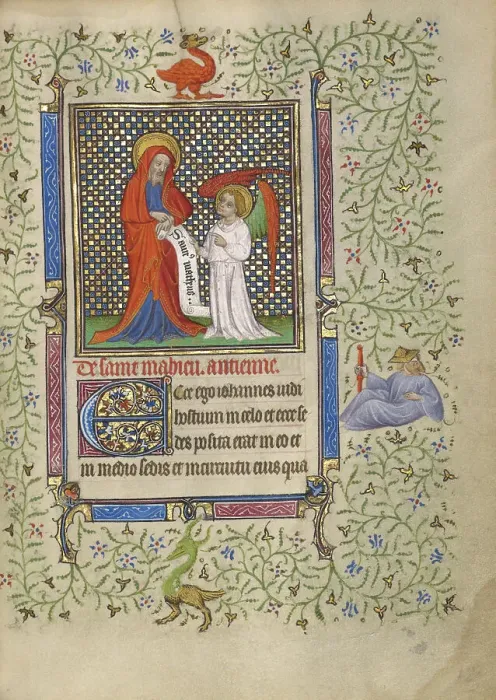 Sanct' matheus
De saint mahieu. antienne.
Ecce ego iohannes uidi
hostium in celo et ecce se
des posita erat in eo et
in medio sedis et in circuitu eius qua